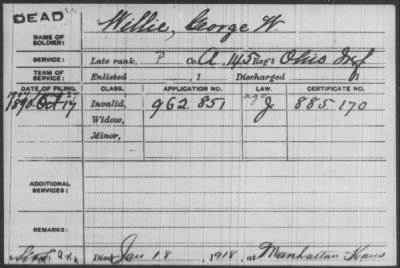 DEAD
Willie, George W.
NAME OF SOLDIER:
SERVICE: Late rank, P Co. A, 145 Reg't Ohio Inf
TERM OF SERVICE: Enlisted , 1 Discharged , 1
DATE OF FILING. CLASS. APPLICATION NO. LAW. CERTIFICATE NO.
1890 Oct 17 Invalid, 962.851 J 885.170
Widow,
Minor,
ADDITIONAL SERVICES:
REMARKS:
Died Jan 18, 1918, at Manhattan Kans